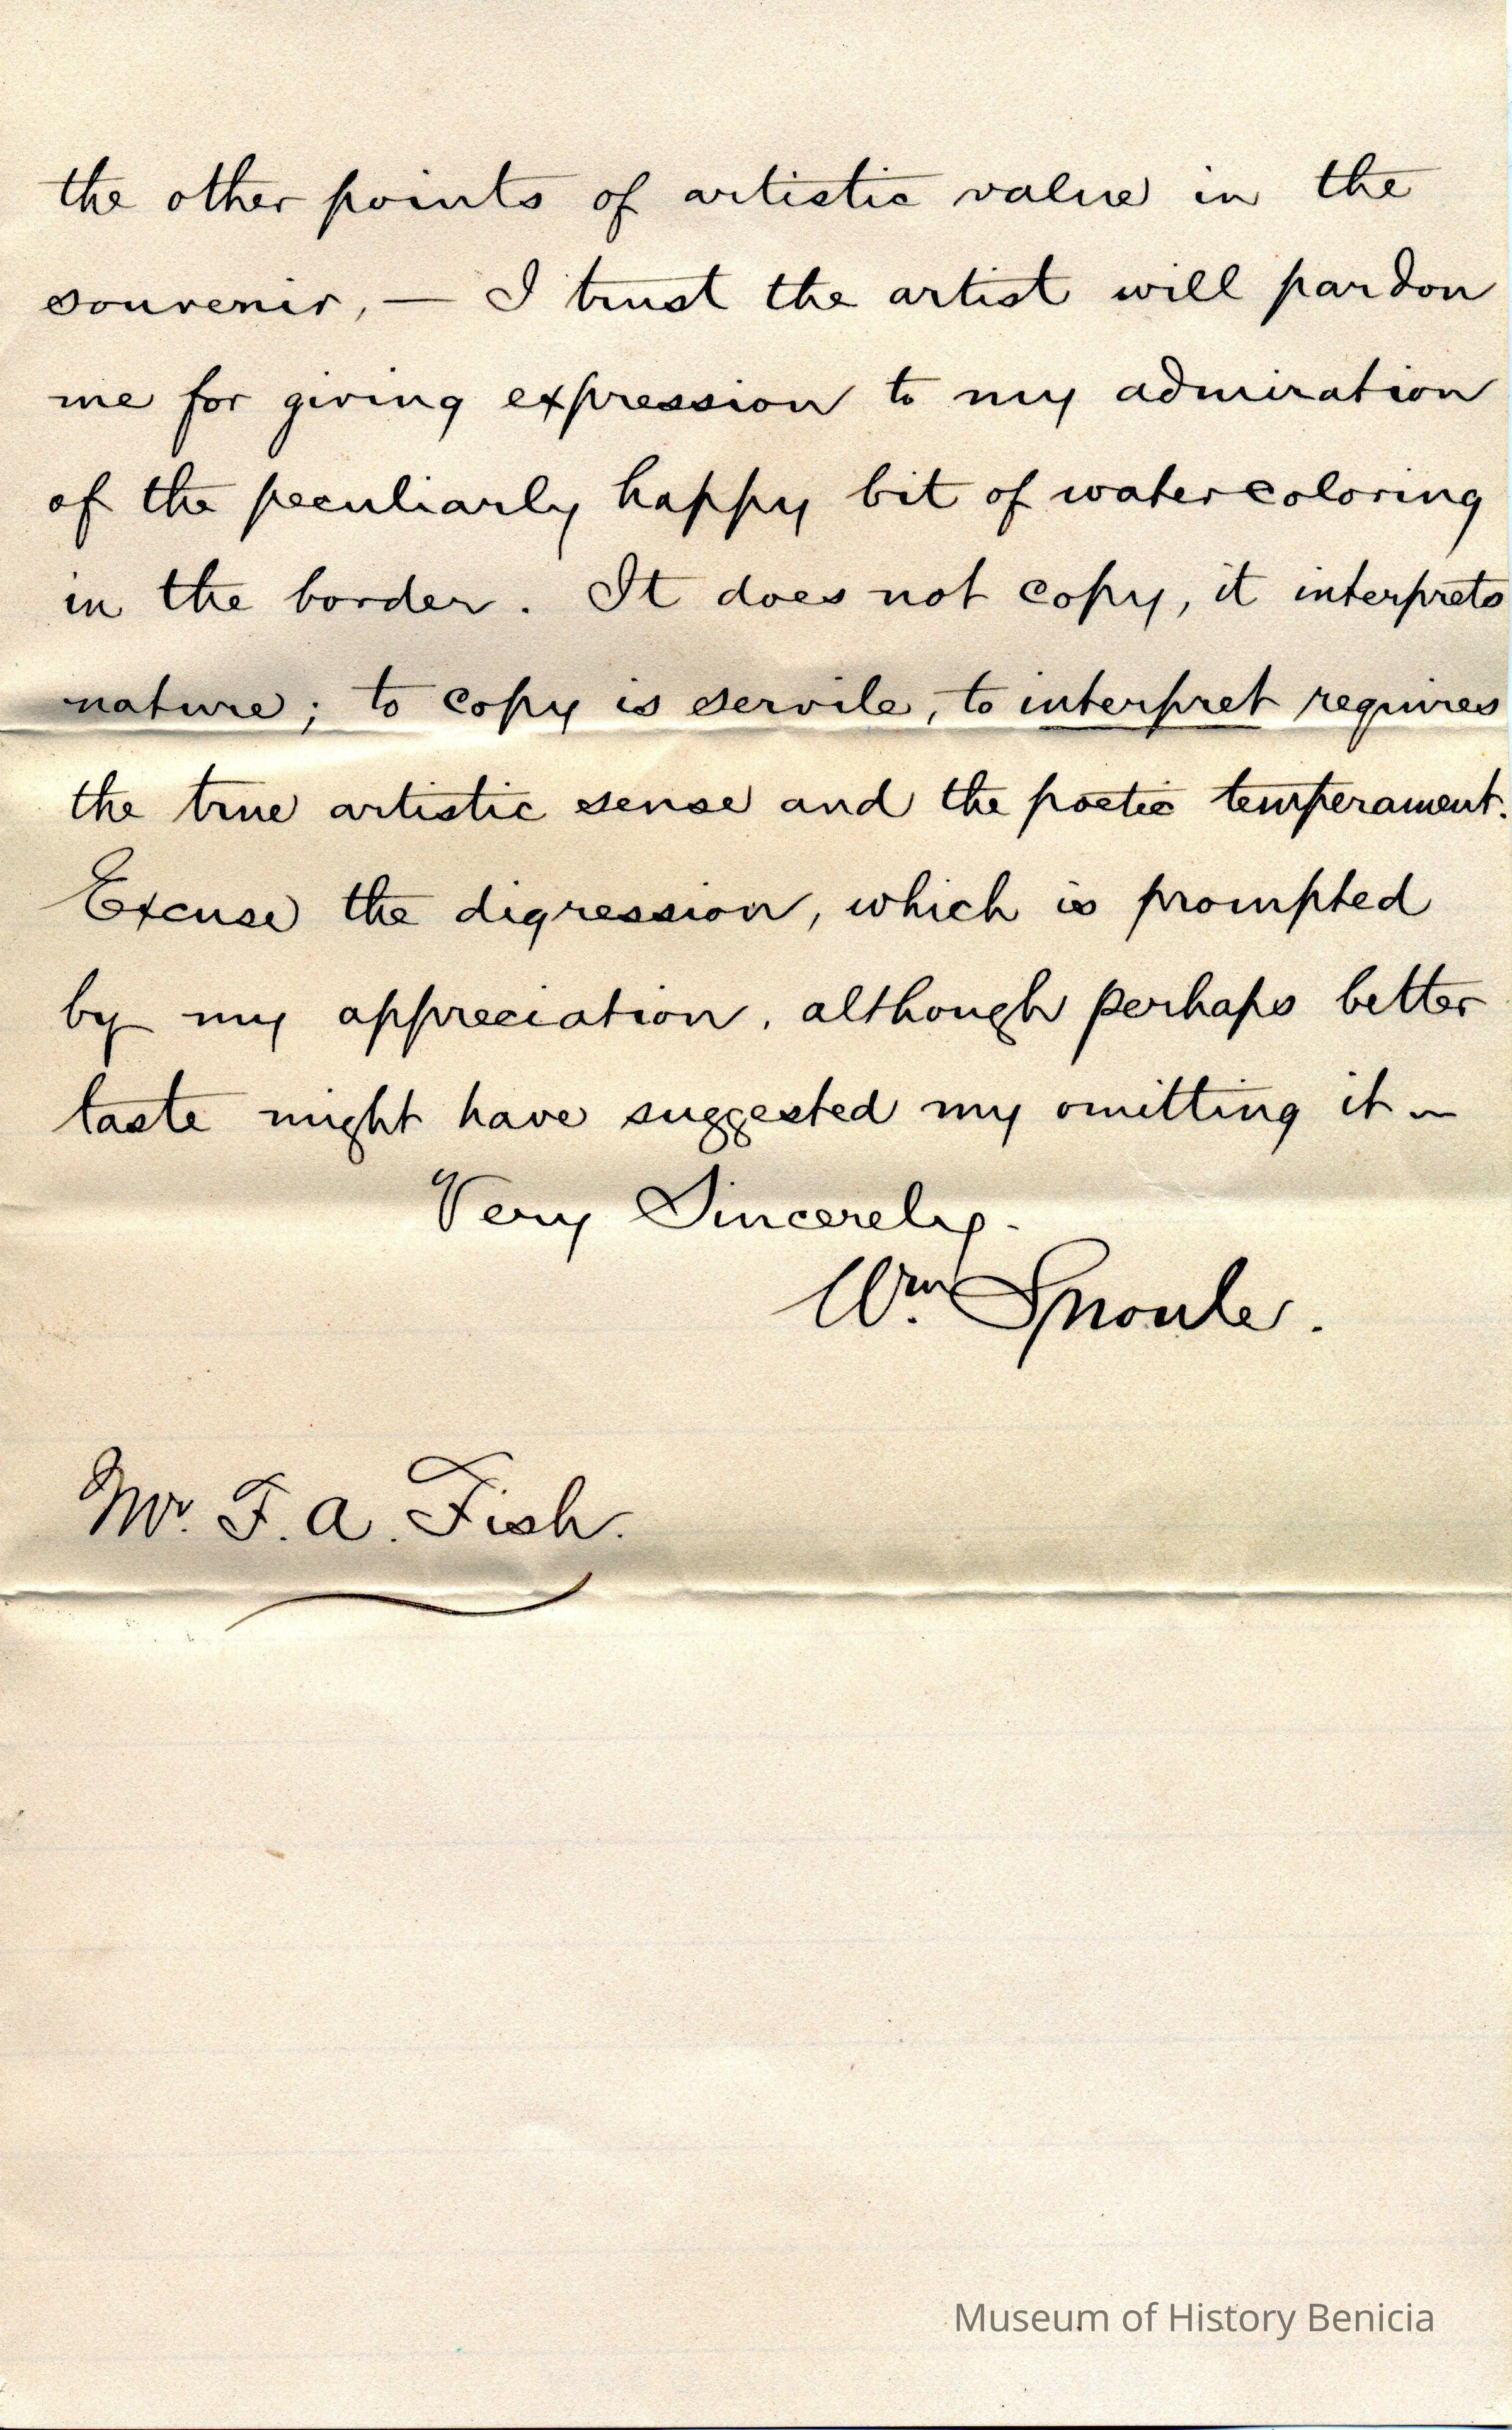 the other points of artistic value in the
souvenir, — I trust the artist will pardon
me for giving expression to my admiration
of the peculiarly happy bit of watercoloring
in the border. It does not copy, it interprets
nature; to copy is servile, to interpret requires
the true artistic sense and the poetic temperament.
Excuse the digression, which is prompted
by my appreciation, although perhaps better
taste might have suggested my omitting it ~
Very Sincerely.
Wm. Sproule.
Mr. F. A. Fish.
Museum of History Benicia